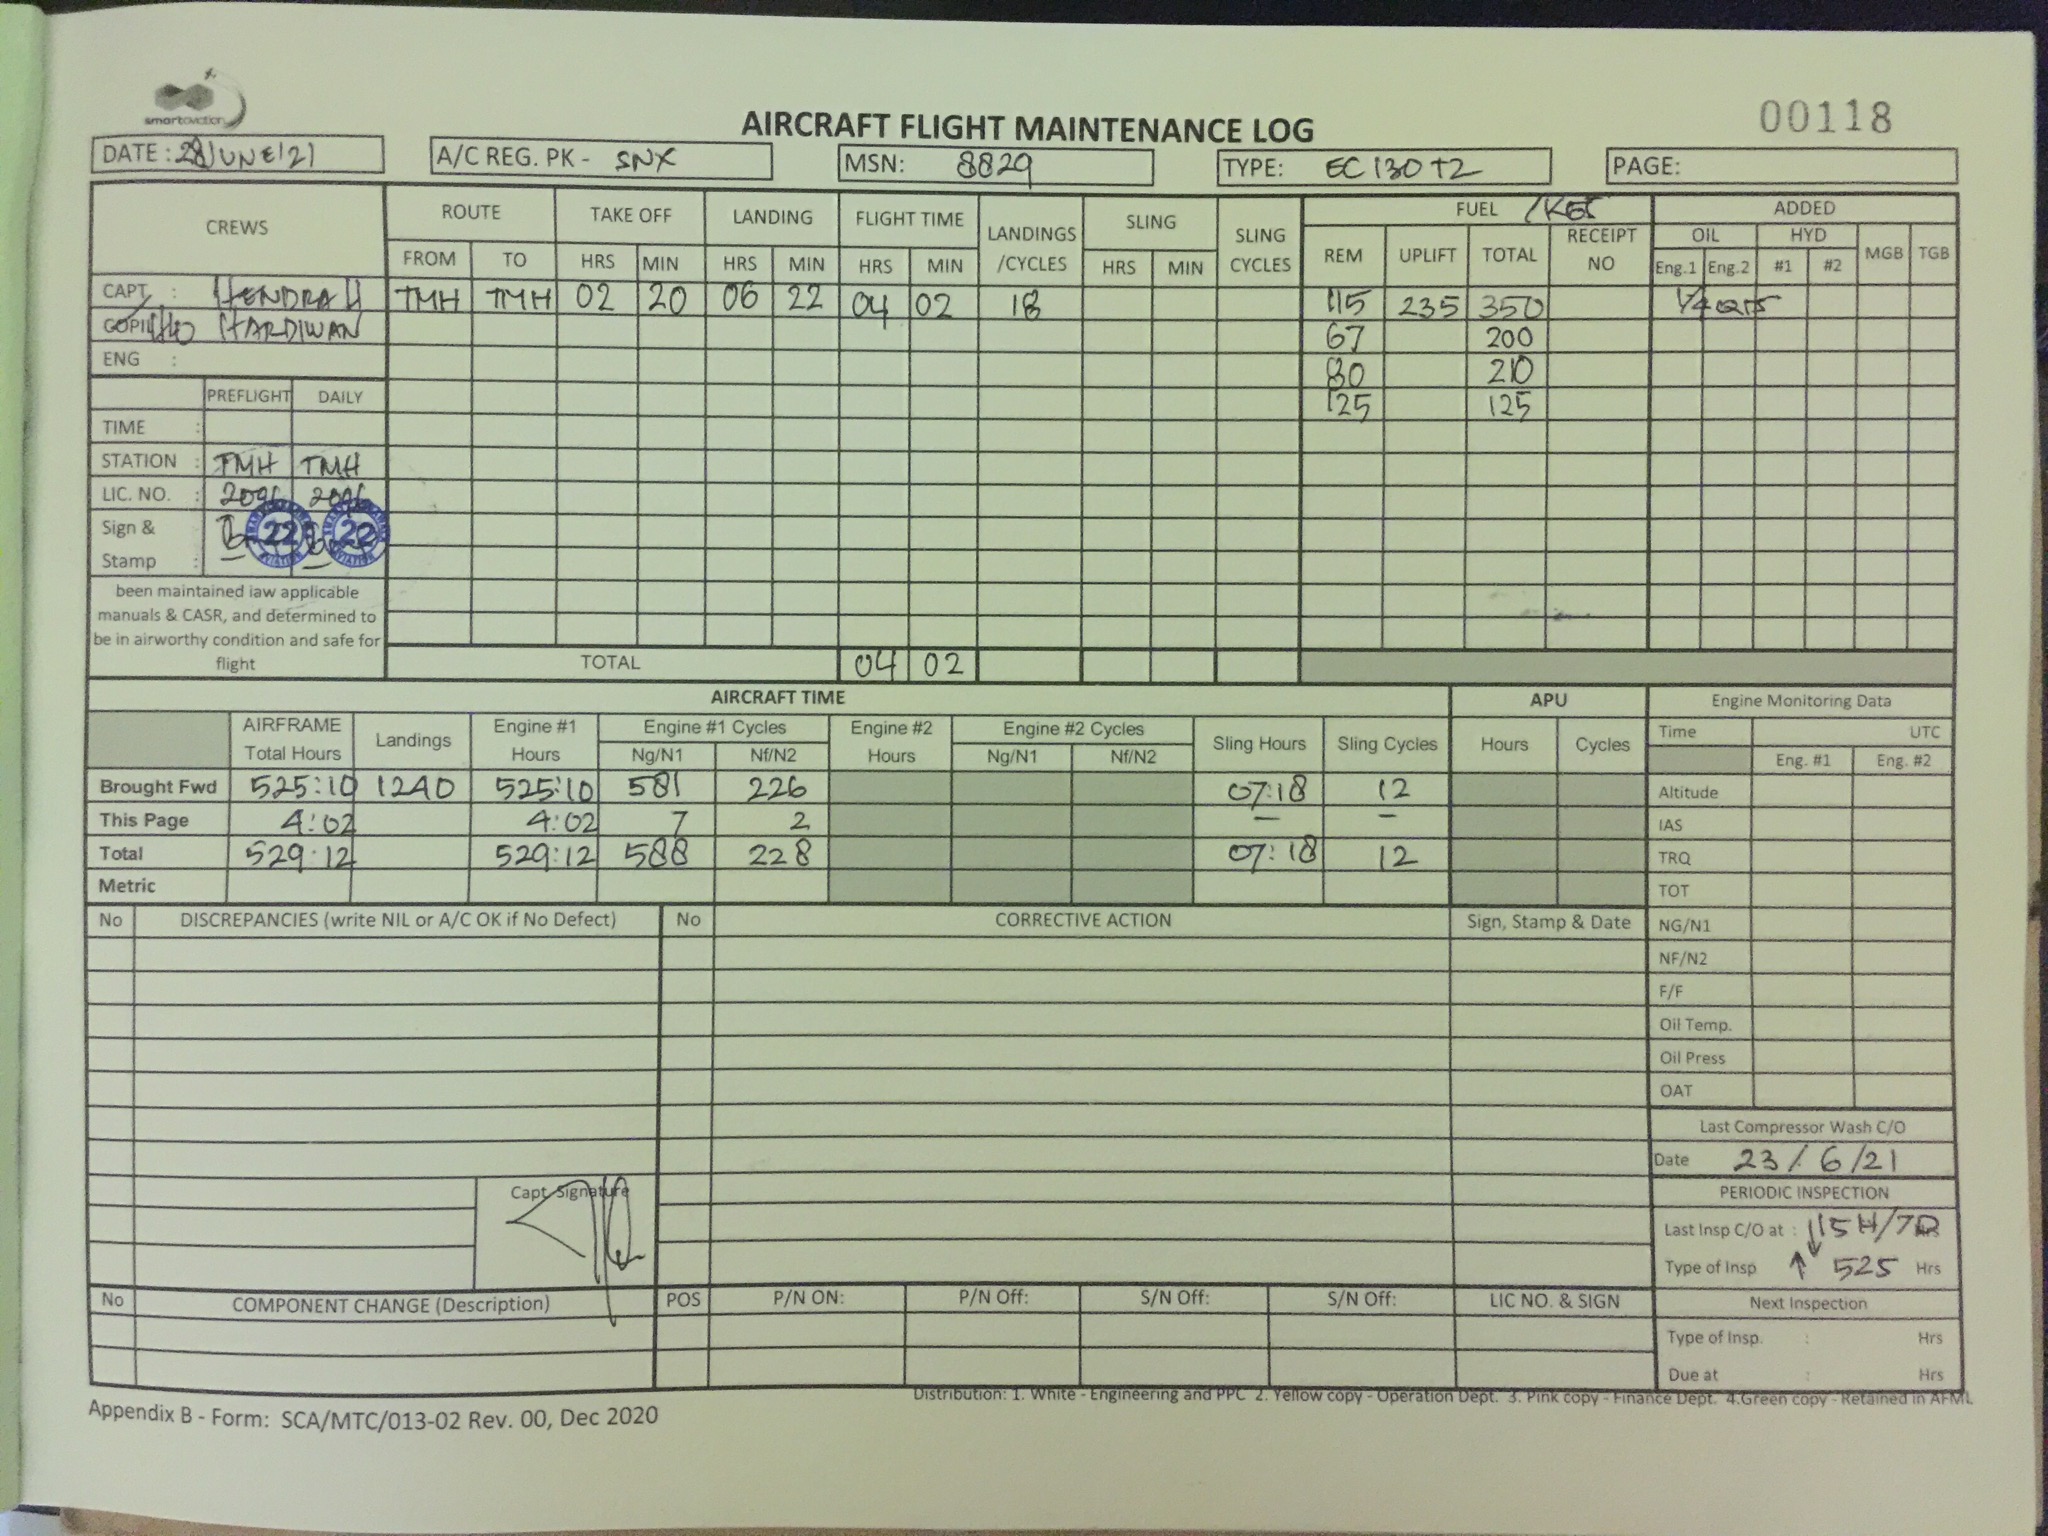 smartaviation
AIRCRAFT FLIGHT MAINTENANCE LOG
00118
DATE : 28/JUNE/21
A/C REG. PK - SNX
MSN: 8829
TYPE: EC130T2
PAGE:
CREWS
ROUTE TAKE OFF LANDING FLIGHT TIME LANDINGS /CYCLES SLING SLING CYCLES FUEL /KGS ADDED
FROM TO HRS MIN HRS MIN HRS MIN HRS MIN REM UPLIFT TOTAL RECEIPT NO OIL HYD MGB TGB
Eng.1 Eng.2 #1 #2
CAPT. : HENDRA H TMH TMH 02 20 06 22 04 02 18 115 235 350 1/4 QTS
COPILOT HARDIWAN 67 200
ENG : 80 210
125 125
PREFLIGHT DAILY
TIME :
STATION : TMH TMH
LIC. NO. : 2096 2096
Sign & Stamp : 22 22
been maintained iaw applicable
manuals & CASR, and determined to
be in airworthy condition and safe for
flight
TOTAL 04 02
AIRCRAFT TIME APU Engine Monitoring Data
AIRFRAME Total Hours Landings Engine #1 Hours Engine #1 Cycles Engine #2 Hours Engine #2 Cycles Sling Hours Sling Cycles Hours Cycles
Ng/N1 Nf/N2 Ng/N1 Nf/N2
Brought Fwd 525:10 1240 525:10 581 226 07:18 12
This Page 4:02 4:02 7 2 — —
Total 529:12 529:12 588 228 07:18 12
Metric
Time UTC
Eng. #1 Eng. #2
Altitude
IAS
TRQ
TOT
NG/N1
NF/N2
F/F
Oil Temp.
Oil Press
OAT
No DISCREPANCIES (write NIL or A/C OK if No Defect) No CORRECTIVE ACTION Sign, Stamp & Date
Capt. Signature
Last Compressor Wash C/O
Date 23/6/21
PERIODIC INSPECTION
Last Insp C/O at : 15H/7D Hrs
Type of Insp 525 Hrs
Next Inspection
Type of Insp. : Hrs
Due at : Hrs
No COMPONENT CHANGE (Description) POS P/N ON: P/N Off: S/N Off: S/N Off: LIC NO. & SIGN
Distribution: 1. White - Engineering and PPC 2. Yellow copy - Operation Dept. 3. Pink copy - Finance Dept. 4.Green copy - Retained in AFML
Appendix B - Form: SCA/MTC/013-02 Rev. 00, Dec 2020